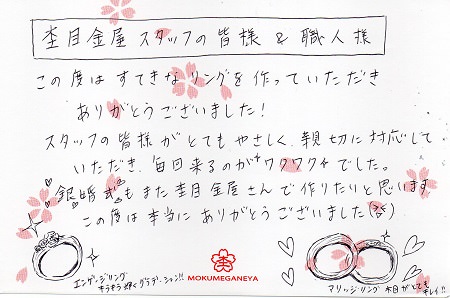 杢目金屋 スタッフの皆様 & 職人様
この度は すてきな リングを 作って いただき
ありがとうございました!
スタッフの 皆様が とても やさしく、親切に 対応して
いただき、毎回来るのが "ワクワク" でした。
銀婚式も また 杢目金屋さんで 作りたいと 思います
この度は 本当に ありがとうございました
エンゲージリング
キラキラ輝くグラデーション!!
MOKUMEGANEYA
マリッジリング 木目がとても
キレイ!!